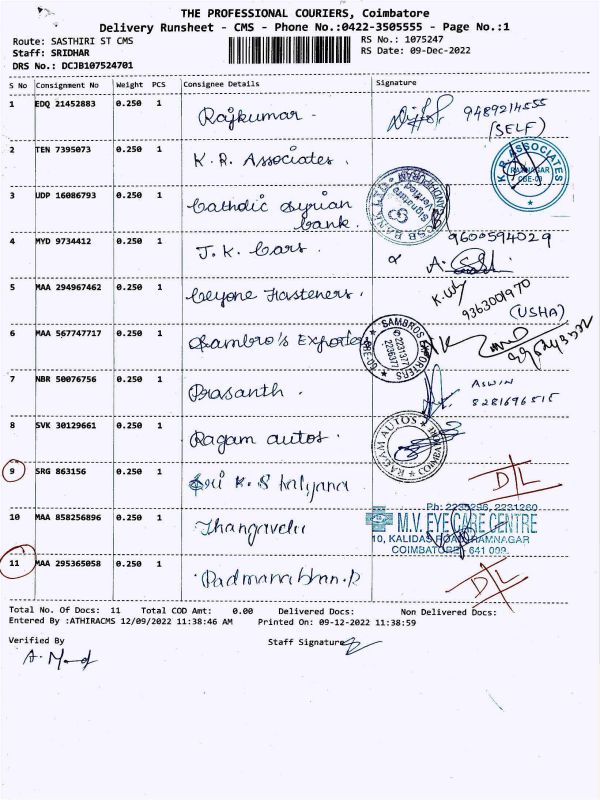 THE PROFESSIONAL COURIERS, Coimbatore
Delivery Runsheet - CMS - Phone No.:0422-3505555 - Page No.:1
Route: SASTHIRI ST CMS
RS No.: 1075247
Staff: SRIDHAR
RS Date: 09-Dec-2022
DRS No.: DCJB107524701
S No Consignment No Weight PCS Consignee Details Signature
1 EDQ 21452883 0.250 1 Rajkumar. 9489214555
(SELF)
2 TEN 7395073 0.250 1 K.R. Associates. K.R. ASSOCIATES RAMNAGAR CBE-09
3 UDP 16086793 0.250 1 Catholic Syrian
bank. CSB BANK LTD. GANDHIPURAM Signature Verified
4 MYD 9734412 0.250 1 J.K. Cars. 9600594029
5 MAA 294967462 0.250 1 Ceyone Fasteners. 9363001970
(USHA)
6 MAA 567747717 0.250 1 Sambro's Exporter SAMBROS EXPORTERS 2231377 2236377
7 NBR 50076756 0.250 1 Prasanth. ASWIN
8281696515
8 SVK 30129661 0.250 1 Ragam autos. RAGAM AUTOS COIMBATORE
9 SRG 863156 0.250 1 Sri K.S kalyana D/L
10 MAA 858256896 0.250 1 Thangavelu M.V. EYE CARE CENTRE
10, KALIDAS ROAD, RAMNAGAR
COIMBATORE - 641 009.
11 MAA 295365058 0.250 1 Padmanabhan.R D/L
Total No. Of Docs: 11 Total COD Amt: 0.00 Delivered Docs: Non Delivered Docs:
Entered By :ATHIRACMS 12/09/2022 11:38:46 AM Printed On: 09-12-2022 11:38:59
Verified By Staff Signature